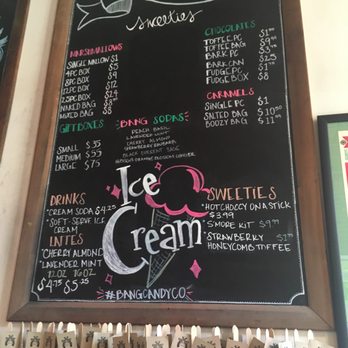 sweeties
MARSHMALLOWS
SINGLE MALLOW $1
4PC BOX $5
8PC BOX $9
12PC BOX $12
BOX $14
NAKED BAG
MIXED BAG $8
CHOCOLATES
TOFFEE PC $1
TOFFEE BAG $9
BARK PC $3
BARK CAN $23
FUDGE PC $1
FUDGE BOX $8
CARAMELS
SINGLE PC $1
SALTED BAG $10.50
BOOZY BAG $11
GIFT BOXES
SMALL $35
MEDIUM $55
LARGE $75
BANG SODAS
PEACH BASIL
LAVENDER MINT
CHERRY ALMOND
STRAWBERRY RHUBARB
BLACK CURRANT SAGE
HABANERO ORANGE BLOSSOM GINGER
DRINKS
*CREAM SODA $4.25
*SOFT-SERVE ICE
CREAM
LATTES
*CHERRY ALMOND
*LAVENDER MINT
12OZ 16OZ
$4.75 $5.25
Ice
Cream
SWEETIES
*HOT CHOCCY ON A STICK
$3.99
*S'MORE KIT
*STRAWBERRY
HONEYCOMB TOFFEE
#BANGCANDYCO